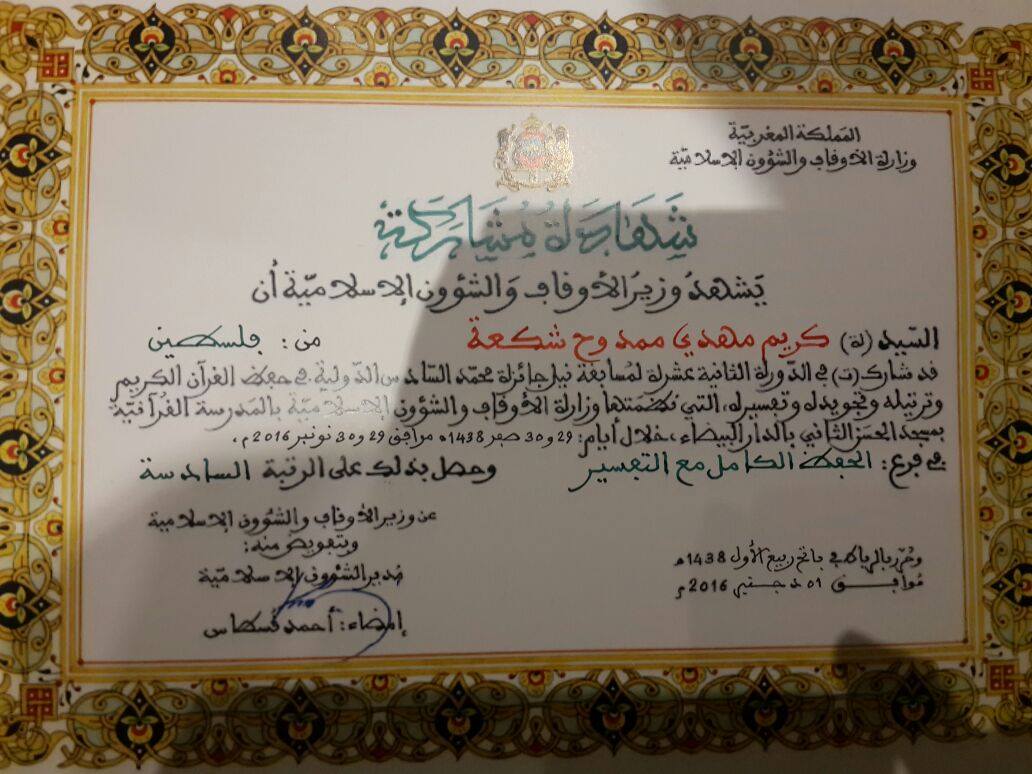 المملكة المغربية
وزارة الأوقاف والشؤون الإسلامية
شَهَادَةُ مُشَارَكَةٍ
يَشْهَدُ وزيرُ الأوقاف وَالشؤون الإسلاميّة أن
السّيد (ة) كريم مهدي ممدوح شكعة من: فلسطين
قد شارك (ت) في الدّورة الثانية عشرة لمُسابقة نيل جائزة محمّد السّادس الدّولية في حفظ القرآن الكريم
وترتيله وتجويده وتفسيره، التي نظمتها وزارة الأوقاف والشؤون الإسلاميّة بالمَدرسة القُرآنيّة
بمسجد الحسن الثاني بالدار البيضاء، خلال أيام: 29 و30 صفر 1438ه موافق 29 و30 نونبر 2016م.
في فرع: الحفظ الكامل مع التفسير وحصل بذلك على الرتبة السادسة
عن وزير الأوقاف والشؤون الإسلامية
وبتفويض منه:
مُدير الشؤون الإسلاميّة
إمضاء: أحمد قسطاس
وحُرّر بالرباط في فاتح ربيع الأول 1438ه
مُوافق 01 دجنبر 2016م